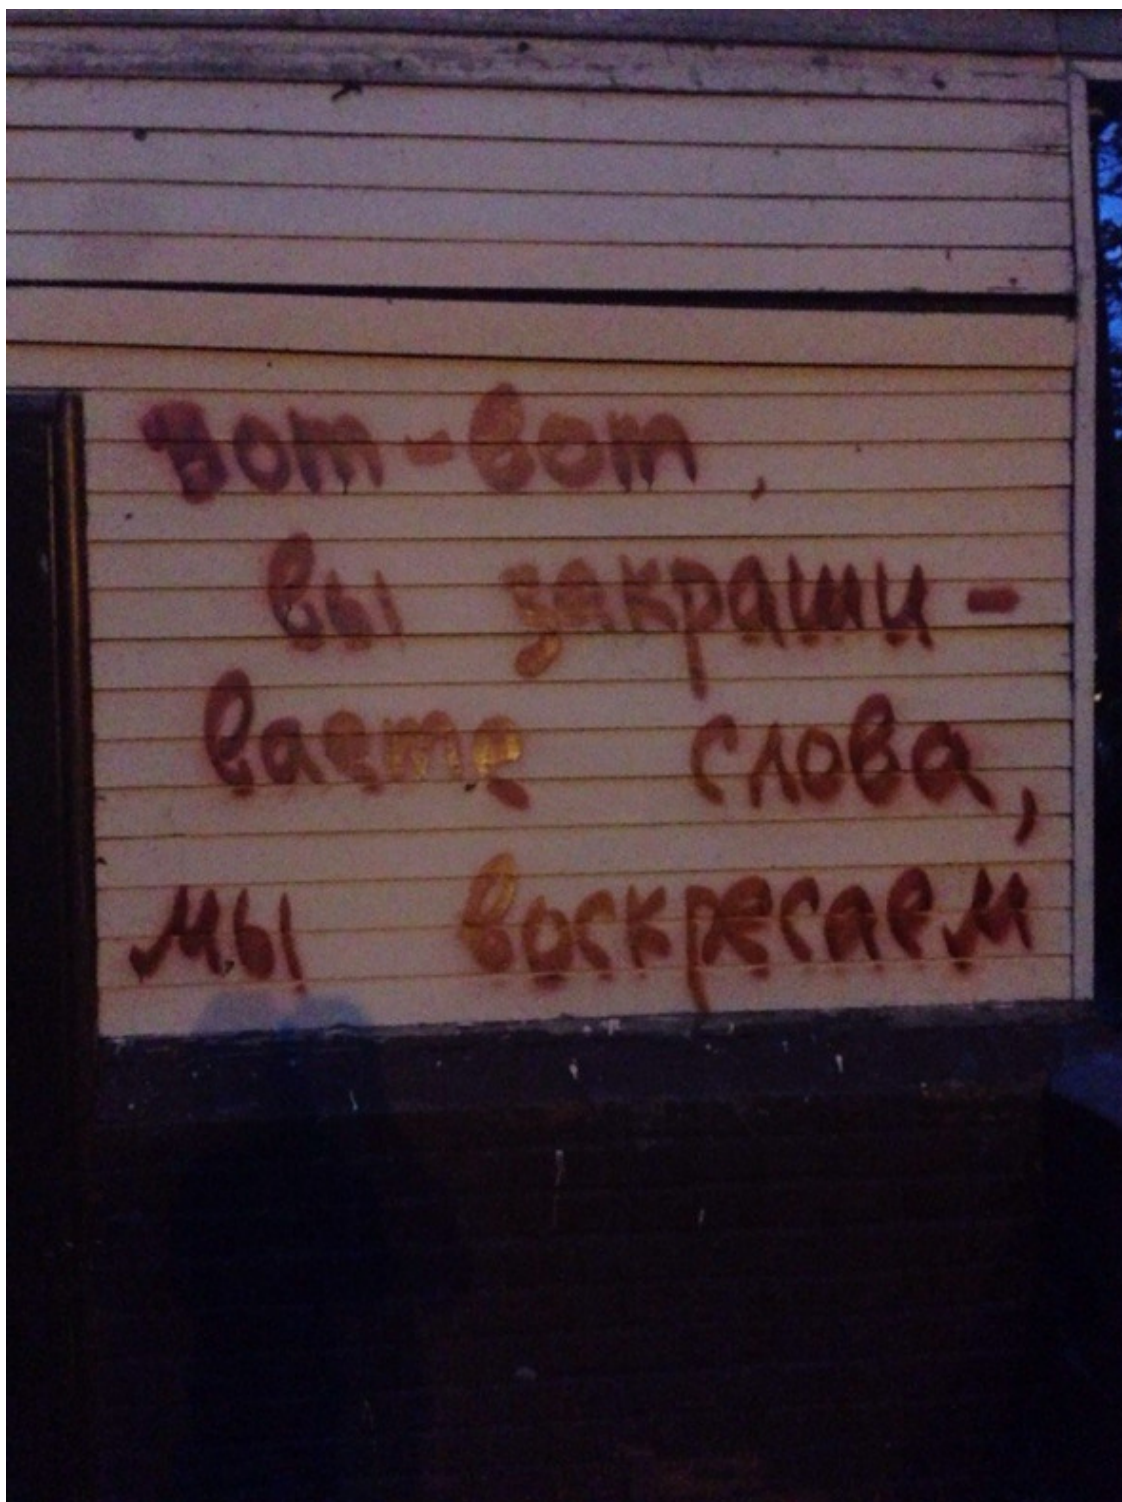 вот-вот,
вы закраши-
ваете слова,
мы воскресаем